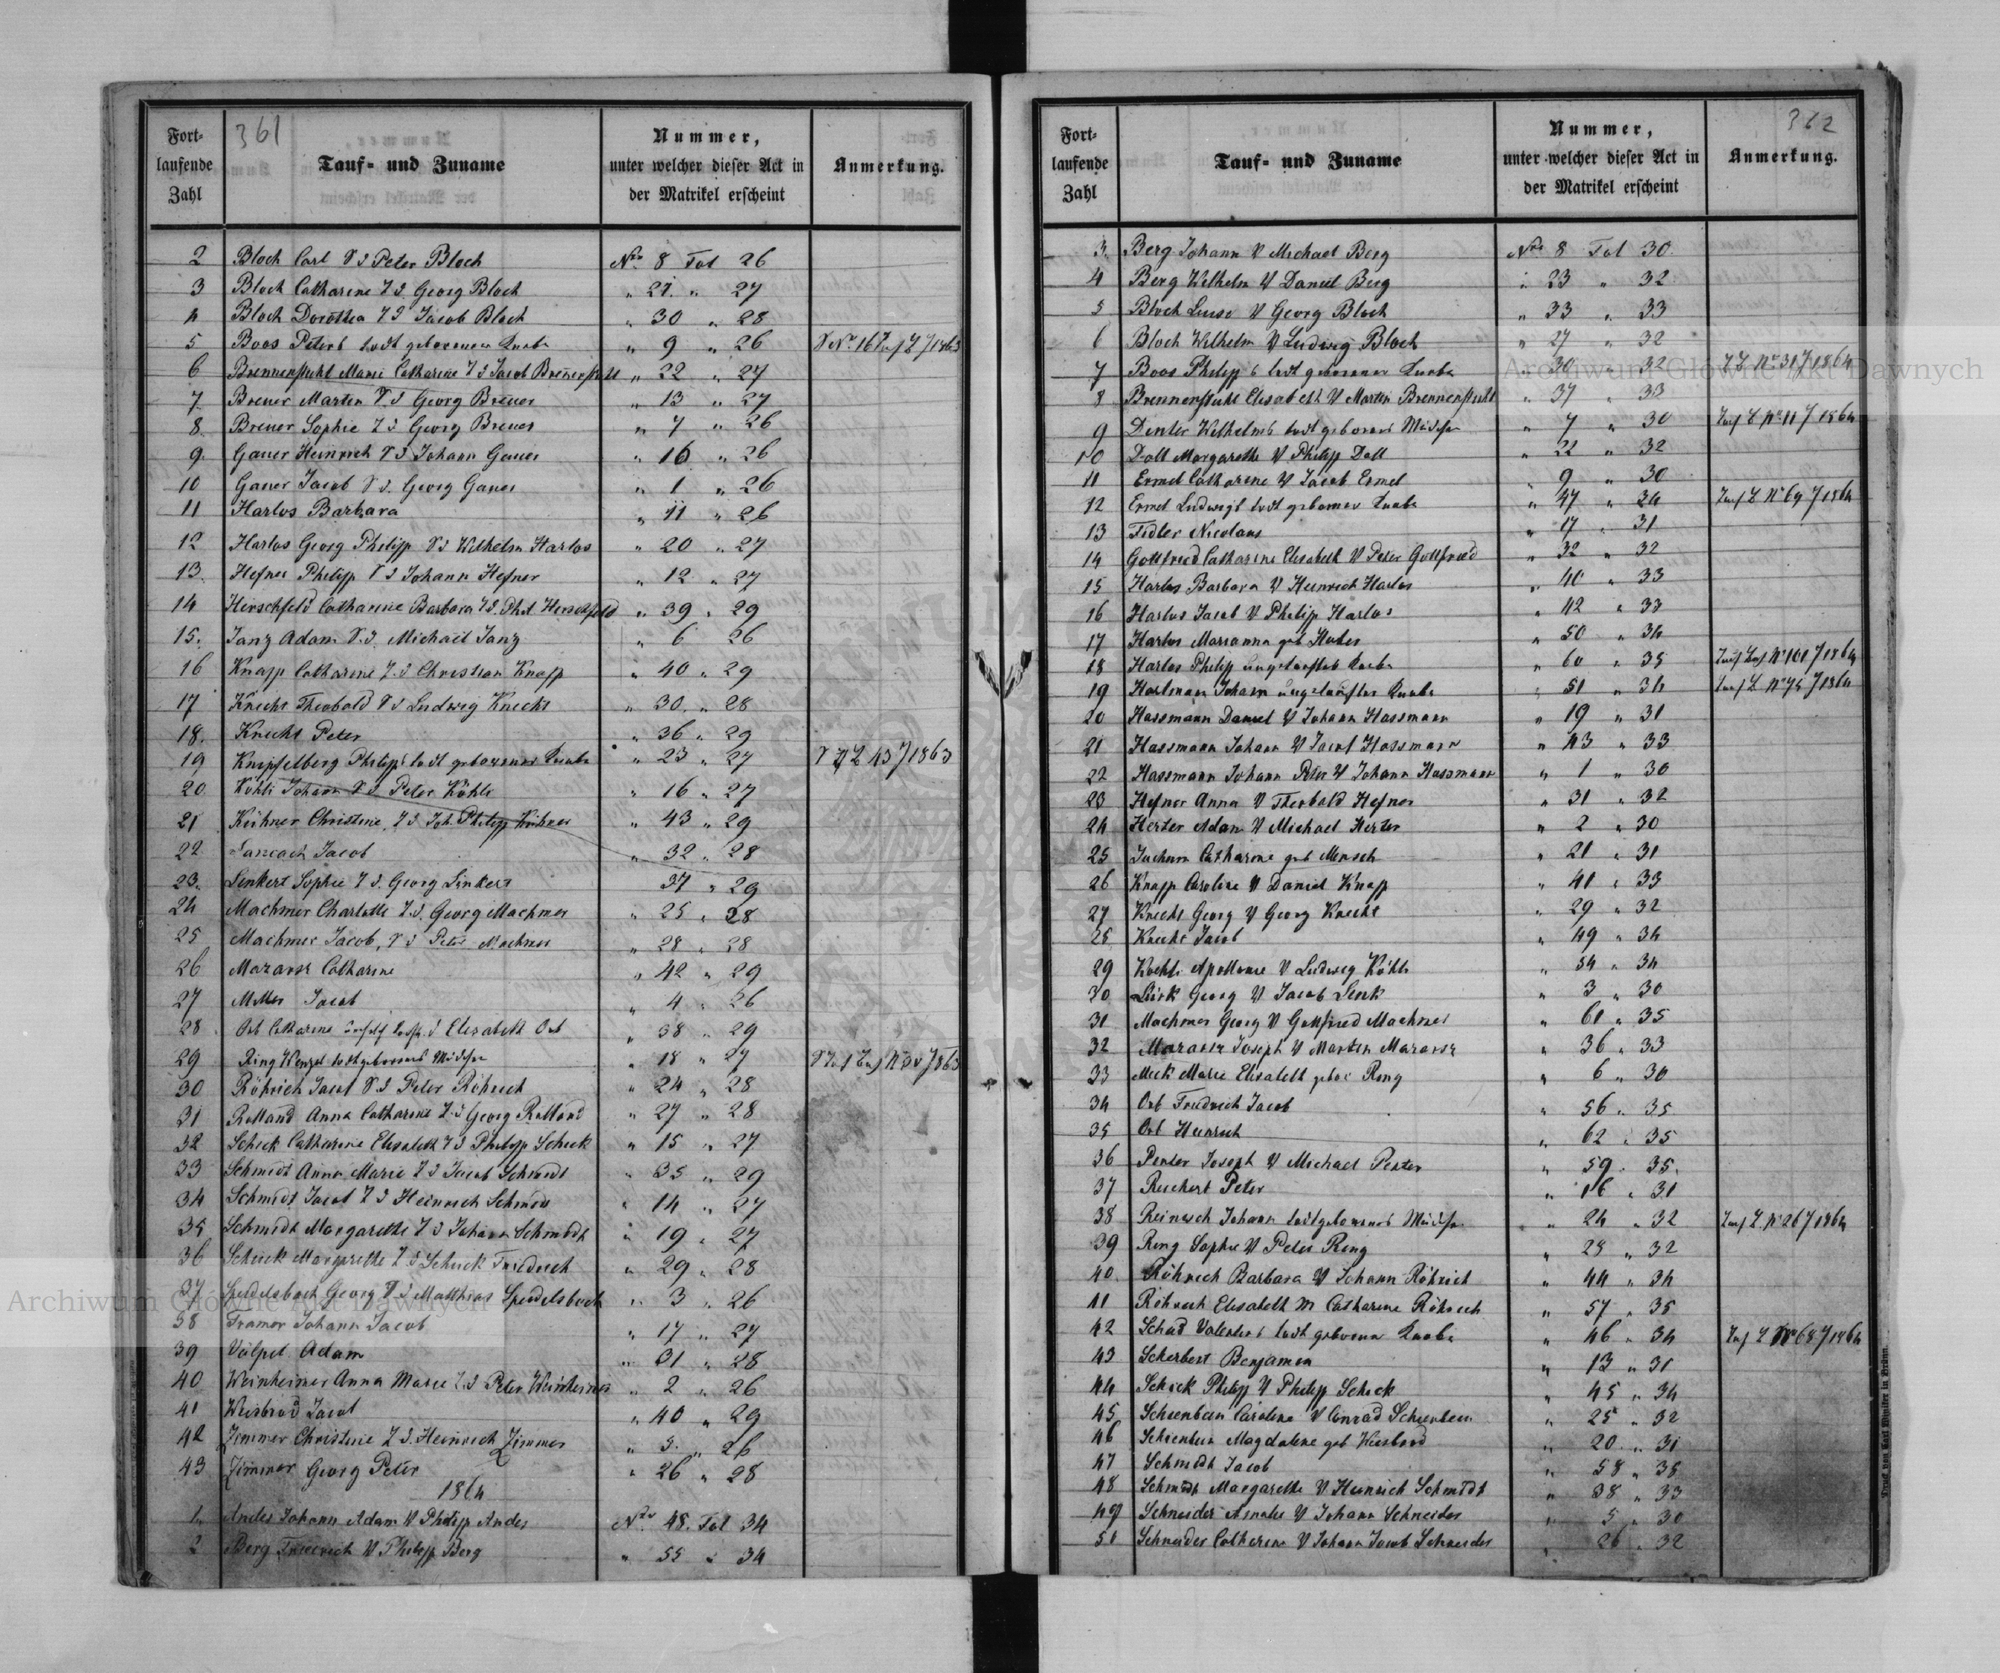 361
Fort-
laufende
Zahl
Tauf- und Zuname
Nummer,
unter welcher dieser Act in
der Matrikel erscheint
Anmerkung.
2 Bloch Carl V d Peter Bloch Nro 8 Fol 26
3 Bloch Catharine T d Georg Bloch " 21 " 27
4 Bloch Dorothea T d Jacob Bloch " 30 " 28
5 Boos Peters todt geborener Knabe " 9 " 26
6 Brennenstuhl Marie Catharine T d Jacob Brennenstuhl " 22 " 27
7 Breuer Martin V d Georg Breuer " 13 " 27
8 Breuer Sophie T d Georg Breuer " 7 " 26
9 Gauer Heinrich V d Johann Gauer " 16 " 26
10 Gauer Jacob V d Georg Gauer " 1 " 26
11 Harlos Barbara " 11 " 26
12 Harlos Georg Philipp V d Wilhelm Harlos " 20 " 27
13 Hefner Philipp V d Johann Hefner " 12 " 27
14 Hirschfeld Catharine Barbara T d Phil Hirschfeld " 39 " 29
15. Janz Adam V. d. Michael Janz " 6 26
16 Knapp Catharine T. d Christian Knapp " 40 " 29
17 Knecht Theobald V d Ludwig Knecht " 30 " 28
18. Knecht Peter " 36 " 29
19 Knipfelberg Philipps todt geborener Knabe " 23 " 27
20 Köhli Johann V d Peter Köhli " 16 " 27
21 Kühner Christine, T d Joh. Philipp Kühner " 43 " 29
22 Jacob " 32 " 28
23. Linkert Sophie T d. Georg Linkert 37 " 29
24 Machmer Charlotte T. d. Georg Machmer " 25 " 28
25 Machmer Jacob, V d Peter Machmer " 28 " 28
26 Catharine " 42 " 29
27 Miller Jacob " 4 " 26
28 Orb Catharine d Elisabeth Orb " 38 " 29
29 Ring Wenzel todtgebornes Mädchen " 18 " 27
30 Röhrich Jacob V d Peter Röhrich " 24 " 28
31 Rolland Anna Catharine T. d Georg Rolland " 27 " 28
32 Schick Catharine Elisabeth T d Philipp Schick " 15 " 27
33 Schmidt Anna Marie T d Jacob Schmidt " 35 " 29
34 Schmidt Jacob T d Heinrich Schmidt " 14 " 27
35 Schmidt Margarethe T d Johann Schmidt " 19 " 27
36 Schick Margarethe T. d Schick Friedrich " 29 " 28
37 Speidelsbach Georg V d Matthias Speidelsbach " 3 " 26
38 Johann Jacob " 17 " 27
39 Völpel Adam " 31 " 28
40 Weinheimer Anna Marie T. d Peter Weinheimer " 2 " 26
41 Weisbrod Jacob " 40 " 29
42 Zimmer Christine T. d. Heinrich Zimmer " 5. " 26
43 Zimmer Georg Peter " 26 " 28
1864
1. Andes Johann Adam V Philipp Andes Nro 48. Fol 34
2 Berg Friedrich V Philipp Berg " 55 " 34
362
Fort-
laufende
Zahl
Tauf- und Zuname
Nummer,
unter welcher dieser Act in
der Matrikel erscheint
Anmerkung.
3. Berg Johann V Michael Berg Nro 8 Fol 30.
4 Berg Wilhelm V Daniel Berg " 23 " 32
5 Bloch Luise V Georg Bloch " 33 " 33
6 Bloch Wilhelm V Ludwig Bloch " 27 " 32
7 Boos Philipp's todt geborener Knabe " 30 " 32
8 Brennenstuhl Elisabeth V Martin Brennenstuhl " 37 " 33
9 Denter Wilhelms todt geborenes Mädchen " 7 " 30
10 Doll Margarethe V Philipp Doll " 22 " 32
11 Ermel Catharine V Jacob Ermel " 9 " 30
12 Ermel Ludwigs todt geborner Knabe " 47 " 34
13 Fidler Nicolaus " 17 " 31
14 Gottfried Catharine Elisabeth V Peter Gottfried " 32 " 32
15 Harlos Barbara V Heinrich Harlos " 40 " 33
16 Harlos Jacob V Philipp Harlos " 42 " 33
17 Harlos Marianna geb Huber " 50 " 34
18 Harlos Philipp ungetaufter Knabe " 60 " 35
19 Hartmann Johann ungetaufter Knabe " 51 " 34
20 Hassmann Daniel V Johann Hassmann " 19 " 31
21 Hassmann Johann V Jacob Hassmann " 43 " 33
22 Hassmann Johann Peter V Johann Hassmann " 1 " 30
23 Hefner Anna V Theobald Hefner " 31 " 32
24 Herter Adam V Michael Herter " 2 " 30
25 Juchum Catharine geb Mensch " 21 " 31
26 Knapp Caroline V Daniel Knapp " 41 " 33
27 Knecht Georg V Georg Knecht " 29 " 32
28 Knecht Jacob " 49 " 34
29 Koehli Apollonie V Ludwig Köhli " 54 " 34
30 Georg V Jacob " 3 " 30
31 Machmer Georg V Gottfried Machmer " 61 " 35
32 Joseph V Martin " 36 " 33
33 Meck Marie Elisabeth gebor Ring " 6 " 30
34 Orb Friedrich Jacob " 56 " 35
35 Orb Heinrich " 62 " 35
36 Penter Joseph V Michael Penter " 59 " 35.
37 Reichert Peter " 16 " 31
38 Reinisch Johann todtgebornes Mädchen " 24 " 32
39 Ring Sophie V Peter Ring " 28 " 32
40. Röhrich Barbara V Johann Röhrich " 44 " 34
41 Röhrich Elisabeth M Catharine Röhrich " 57 " 35
42 Schad Valentins todt geborner Knabe " 46 " 34
43 Scherbert Benjamin " 13 " 31
44 Schick Philipp V Philipp Schick " 45 " 34
45 Schienbein Caroline V Conrad Schienbein " 25 " 32
46 Schienbein Magdalene geb Weisbrod " 20 " 31
47 Schmidt Jacob " 58 " 35
48 Schmidt Margarethe V Heinrich Schmidt " 38 " 33
49 Schneider Amalie V Johann Schneider " 5 " 30
50 Schneider Catharine V Johann Jacob Schneider " 26 " 32
Archiwum Główne Akt Dawnych
Archiwum Główne Akt Dawnych